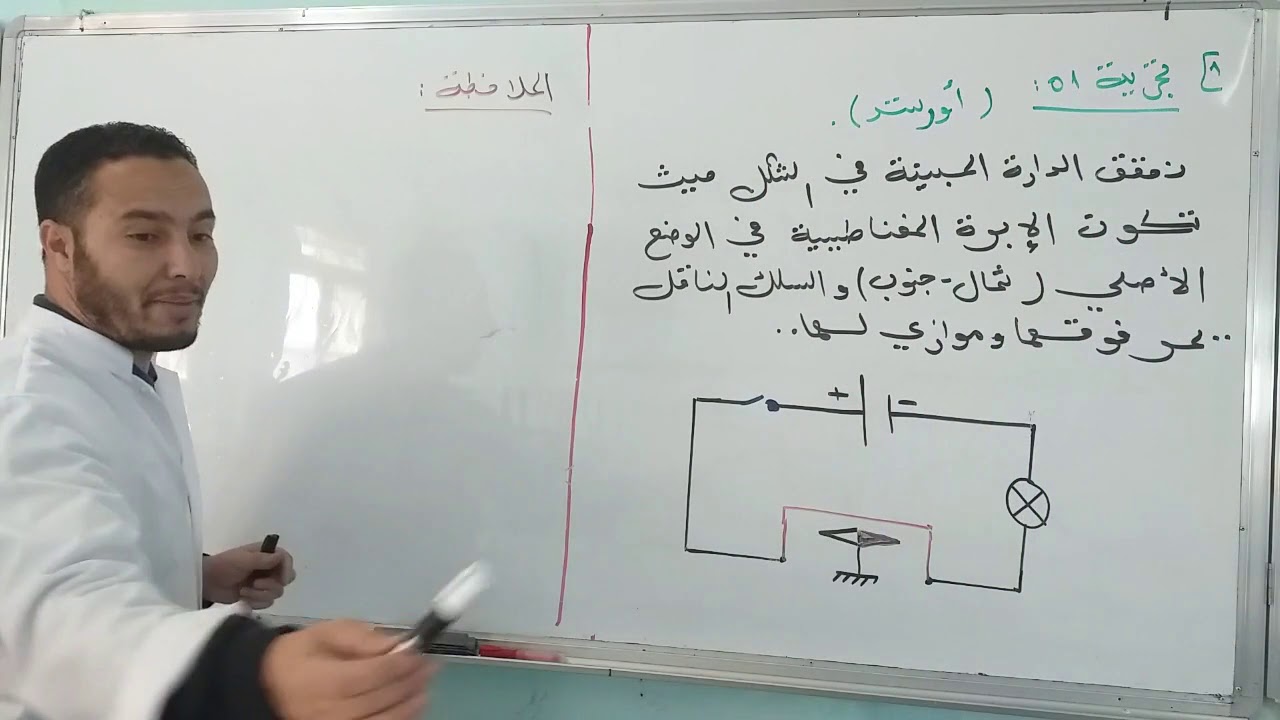 1] تجربة 01: (أورستد).
نحقق الدارة المبينة في الشكل حيث
تكون الإبرة المغناطيسية في الوضع
الأصلي (شمال-جنوب) و السلك الناقل
يمر فوقها وموازي لها..
الملاحظة:
+ -